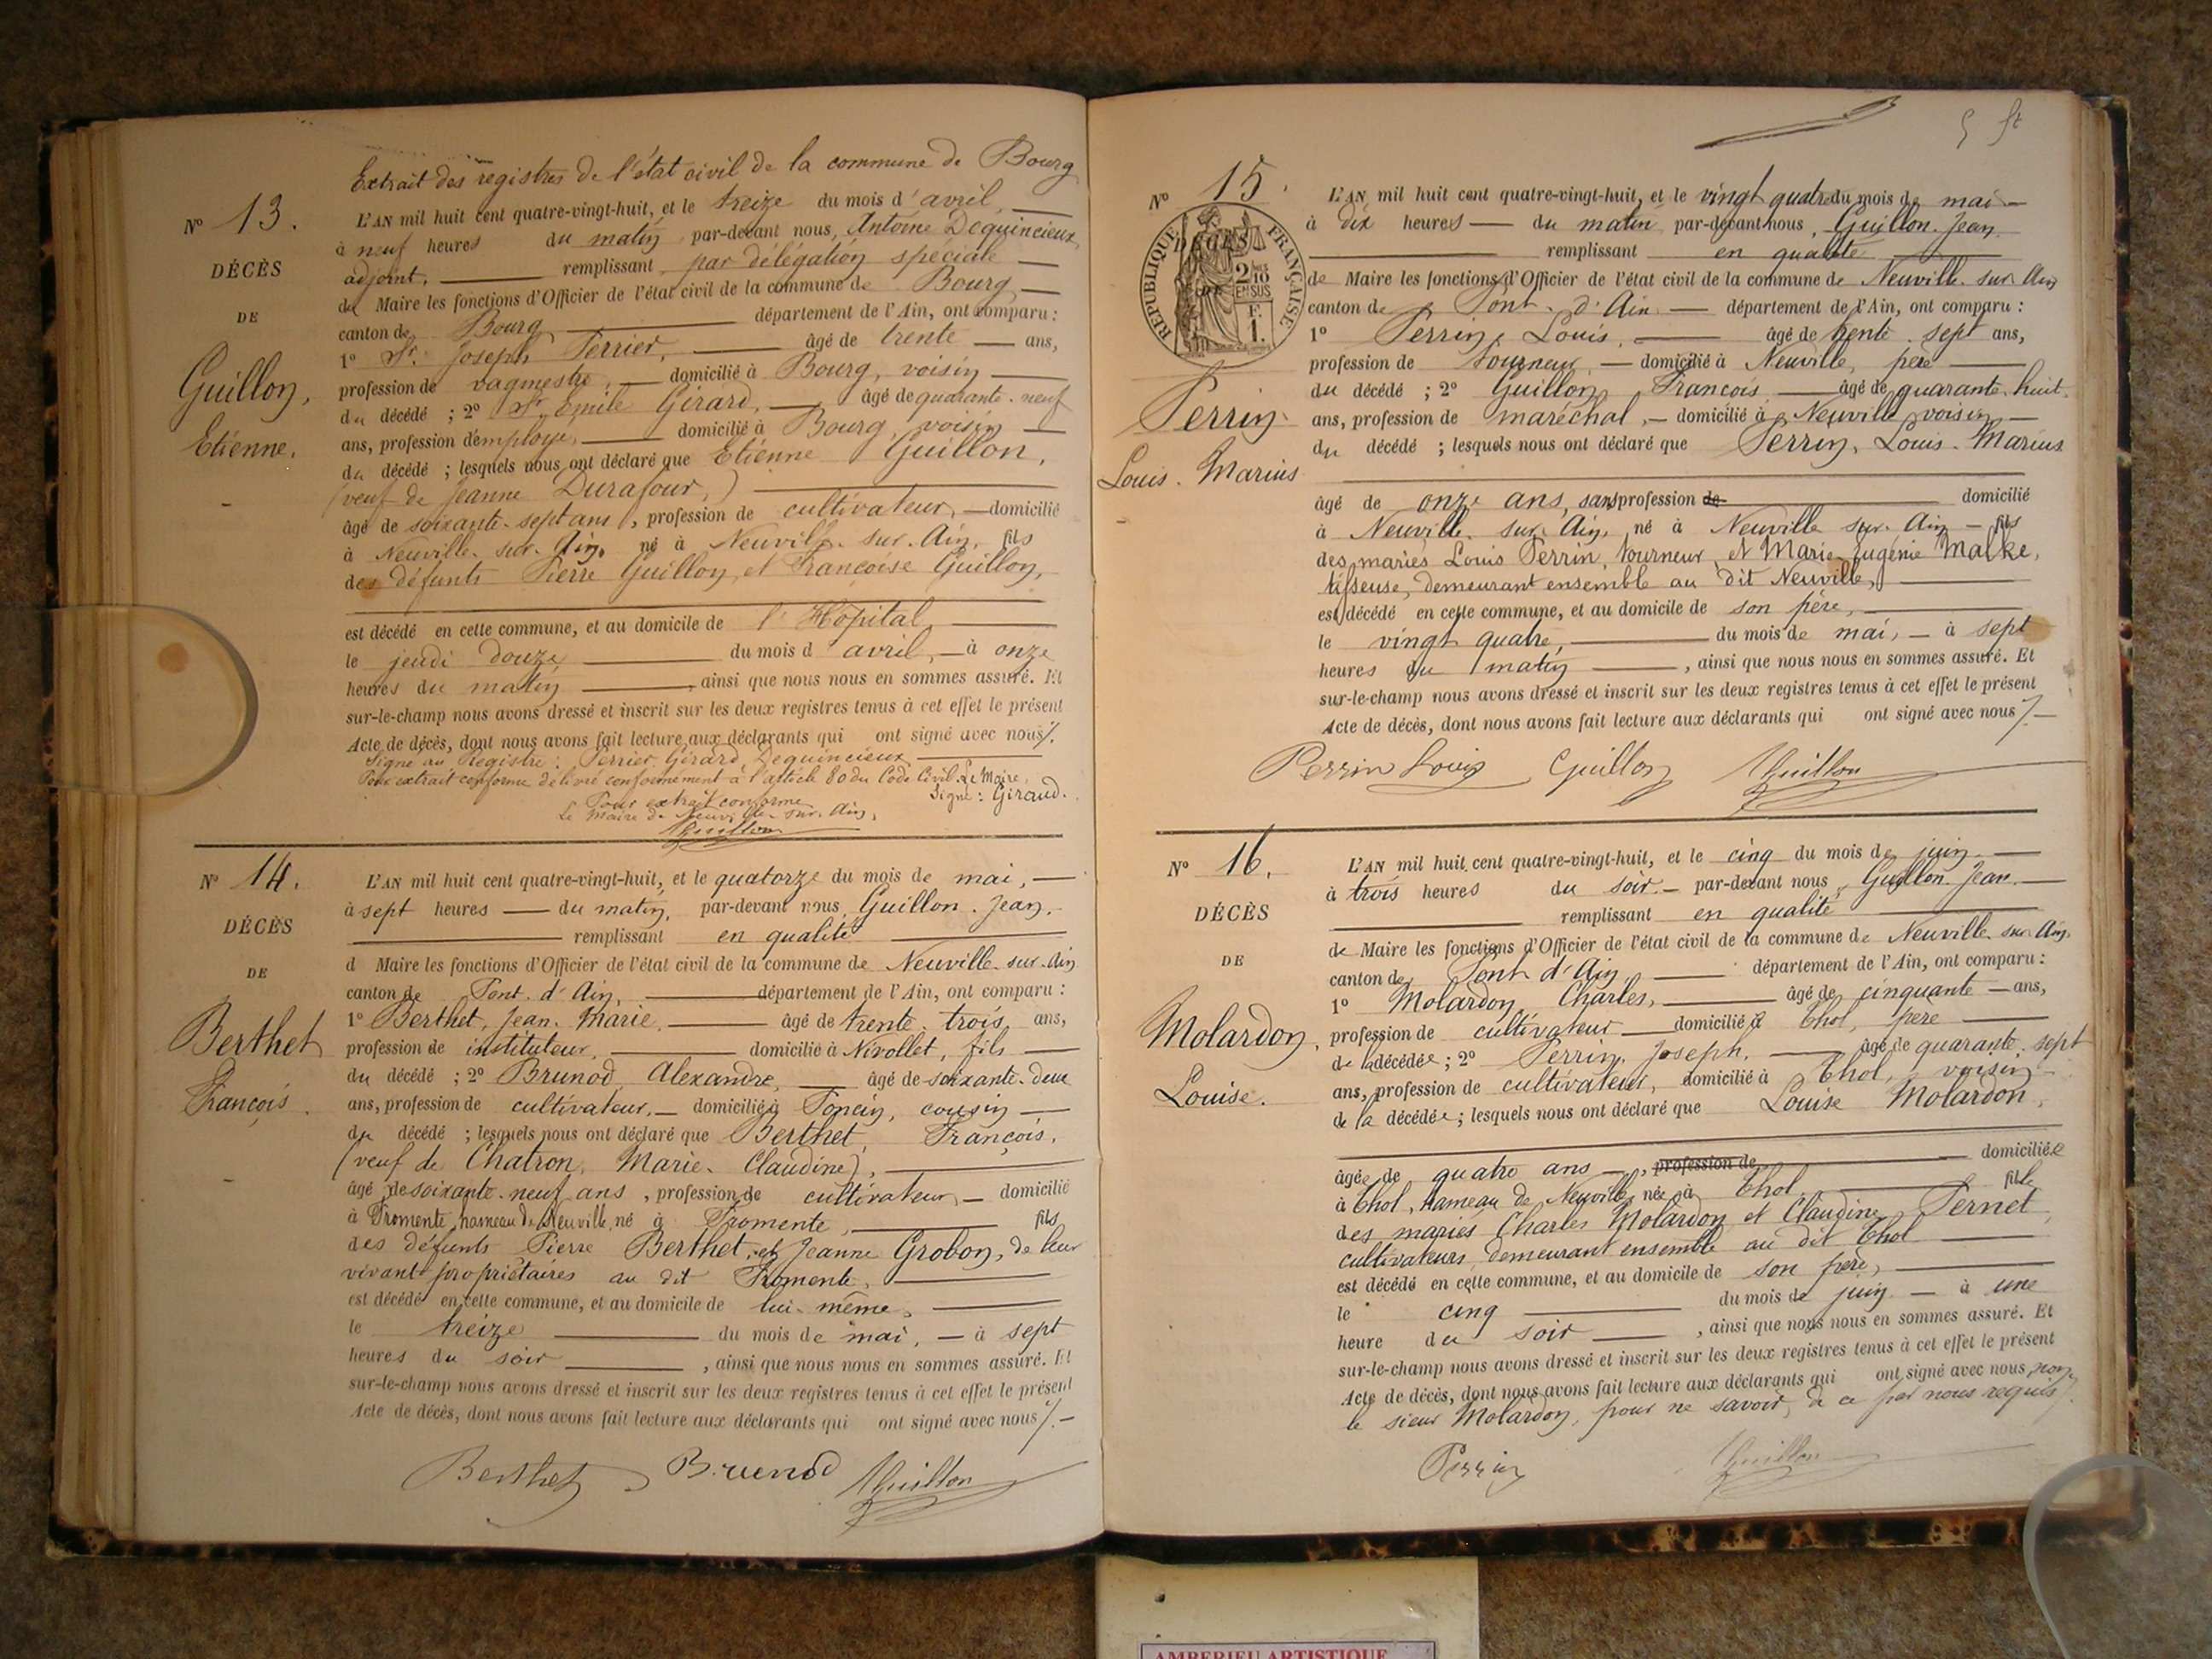 Extrait des registres de l'état civil de la commune de Bourg
N° 13.
DÉCÈS
DE
Guillon,
Etienne.
L'AN mil huit cent quatre-vingt-huit, et le treize du mois d'avril,
à neuf heures du matin par-devant nous, Antoine Dequincieux
adjoint, remplissant par délégation spéciale
de Maire les fonctions d'Officier de l'état civil de la commune de Bourg
canton de Bourg département de l'Ain, ont comparu :
1° Sr. Joseph Terrier, âgé de trente ans,
profession de vagmestre, domicilié à Bourg, voisin
du décédé ; 2° Sr. Emile Gérard, âgé de quarante-neuf
ans, profession d'employé, domicilié à Bourg, voisin
du décédé ; lesquels nous ont déclaré que Etienne Guillon,
(veuf de Jeanne Durafour,)
âgé de soixante-sept ans, profession de cultivateur, domicilié
à Neuville-sur-Ain, né à Neuville-sur-Ain, fils
des défunts Pierre Guillon et Françoise Guillon,
est décédé en cette commune, et au domicile de l'Hôpital,
le jeudi douze du mois d'avril, à onze
heures du matin, ainsi que nous nous en sommes assuré. Et
sur-le-champ nous avons dressé et inscrit sur les deux registres tenus à cet effet le présent
Acte de décès, dont nous avons fait lecture aux déclarants qui ont signé avec nous /.
Signé au Registre : Terrier, Gérard, Dequincieux
Pour extrait conforme délivré conformément à l'article 80 du Code Civil. Le Maire,
Signé : Giraud.
Pour extrait conforme
Le Maire de Neuville-sur-Ain,
JGuillon
N° 14.
DÉCÈS
DE
Berthet
François.
L'AN mil huit cent quatre-vingt-huit, et le quatorze du mois de mai,
à sept heures du matin, par-devant nous, Guillon Jean,
remplissant en qualité
d Maire les fonctions d'Officier de l'état civil de la commune de Neuville-sur-Ain
canton de Pont-d'Ain, département de l'Ain, ont comparu :
1° Berthet, Jean-Marie, âgé de trente-trois ans,
profession de instituteur, domicilié à Nivollet, fils
du décédé ; 2° Brunod, Alexandre, âgé de soixante-deux
ans, profession de cultivateur, domicilié à Poncin, cousin
du décédé ; lesquels nous ont déclaré que Berthet, François,
(veuf de Chatron, Marie-Claudine),
âgé de soixante-neuf ans, profession de cultivateur, domicilié
à Fromente, hameau de Neuville, né à Fromente, fils
des défunts Pierre Berthet, et Jeanne Grobon, de leur
vivant propriétaires au dit Fromente,
est décédé en cette commune, et au domicile de lui-même,
le treize du mois de mai, à sept
heures du soir, ainsi que nous nous en sommes assuré. Et
sur-le-champ nous avons dressé et inscrit sur les deux registres tenus à cet effet le présent
Acte de décès, dont nous avons fait lecture aux déclarants qui ont signé avec nous /.
Berthet Brunod JGuillon
N° 15.
RÉPUBLIQUE FRANÇAISE
DÉCÈS
DE
2/10
EN SUS
F.
1.
Perrin
Louis-Marius
L'AN mil huit cent quatre-vingt-huit, et le vingt quatre du mois de mai
à dix heures du matin par-devant nous, Guillon Jean
remplissant en qualité
de Maire les fonctions d'Officier de l'état civil de la commune de Neuville-sur-Ain
canton de Pont-d'Ain département de l'Ain, ont comparu :
1° Perrin, Louis, âgé de trente-sept ans,
profession de tourneur, domicilié à Neuville, père
du décédé ; 2° Guillon, François, âgé de quarante-huit
ans, profession de maréchal, domicilié à Neuville voisin
du décédé ; lesquels nous ont déclaré que Perrin, Louis-Marius
âgé de onze ans, sans profession de domicilié
à Neuville-sur-Ain, né à Neuville-sur-Ain fils
des mariés Louis Perrin, tourneur, et Marie-Eugénie Malke,
tisseuse, demeurant ensemble au dit Neuville,
est décédé en cette commune, et au domicile de son père,
le vingt quatre, du mois de mai, à sept
heures du matin, ainsi que nous nous en sommes assuré. Et
sur-le-champ nous avons dressé et inscrit sur les deux registres tenus à cet effet le présent
Acte de décès, dont nous avons fait lecture aux déclarants qui ont signé avec nous /.
Perrin Louis Guillon JGuillon
N° 16.
DÉCÈS
DE
Molardon,
Louise.
L'AN mil huit cent quatre-vingt-huit, et le cinq du mois de juin
à trois heures du soir par-devant nous, Guillon Jean
remplissant en qualité
de Maire les fonctions d'Officier de l'état civil de la commune de Neuville-sur-Ain
canton de Pont d'Ain, département de l'Ain, ont comparu :
1° Molardon, Charles, âgé de cinquante ans,
profession de cultivateur domicilié à Thol, père
de la décédée ; 2° Perrin, Joseph, âgé de quarante-sept
ans, profession de cultivateur, domicilié à Thol, voisin
de la décédée ; lesquels nous ont déclaré que Louise Molardon,
âgée de quatre ans, profession de domiciliée
à Thol, hameau de Neuville, née à Thol fille
des mariés Charles Molardon et Claudine Pernet,
cultivateurs, demeurant ensemble au dit Thol
est décédé en cette commune, et au domicile de son père,
le cinq du mois de juin à une
heure du soir, ainsi que nous nous en sommes assuré. Et
sur-le-champ nous avons dressé et inscrit sur les deux registres tenus à cet effet le présent
Acte de décès, dont nous avons fait lecture aux déclarants qui ont signé avec nous, non
le sieur Molardon, pour ne savoir, de ce par nous requis /.
Perrin JGuillon
AMBERIEU ARTISTIQUE